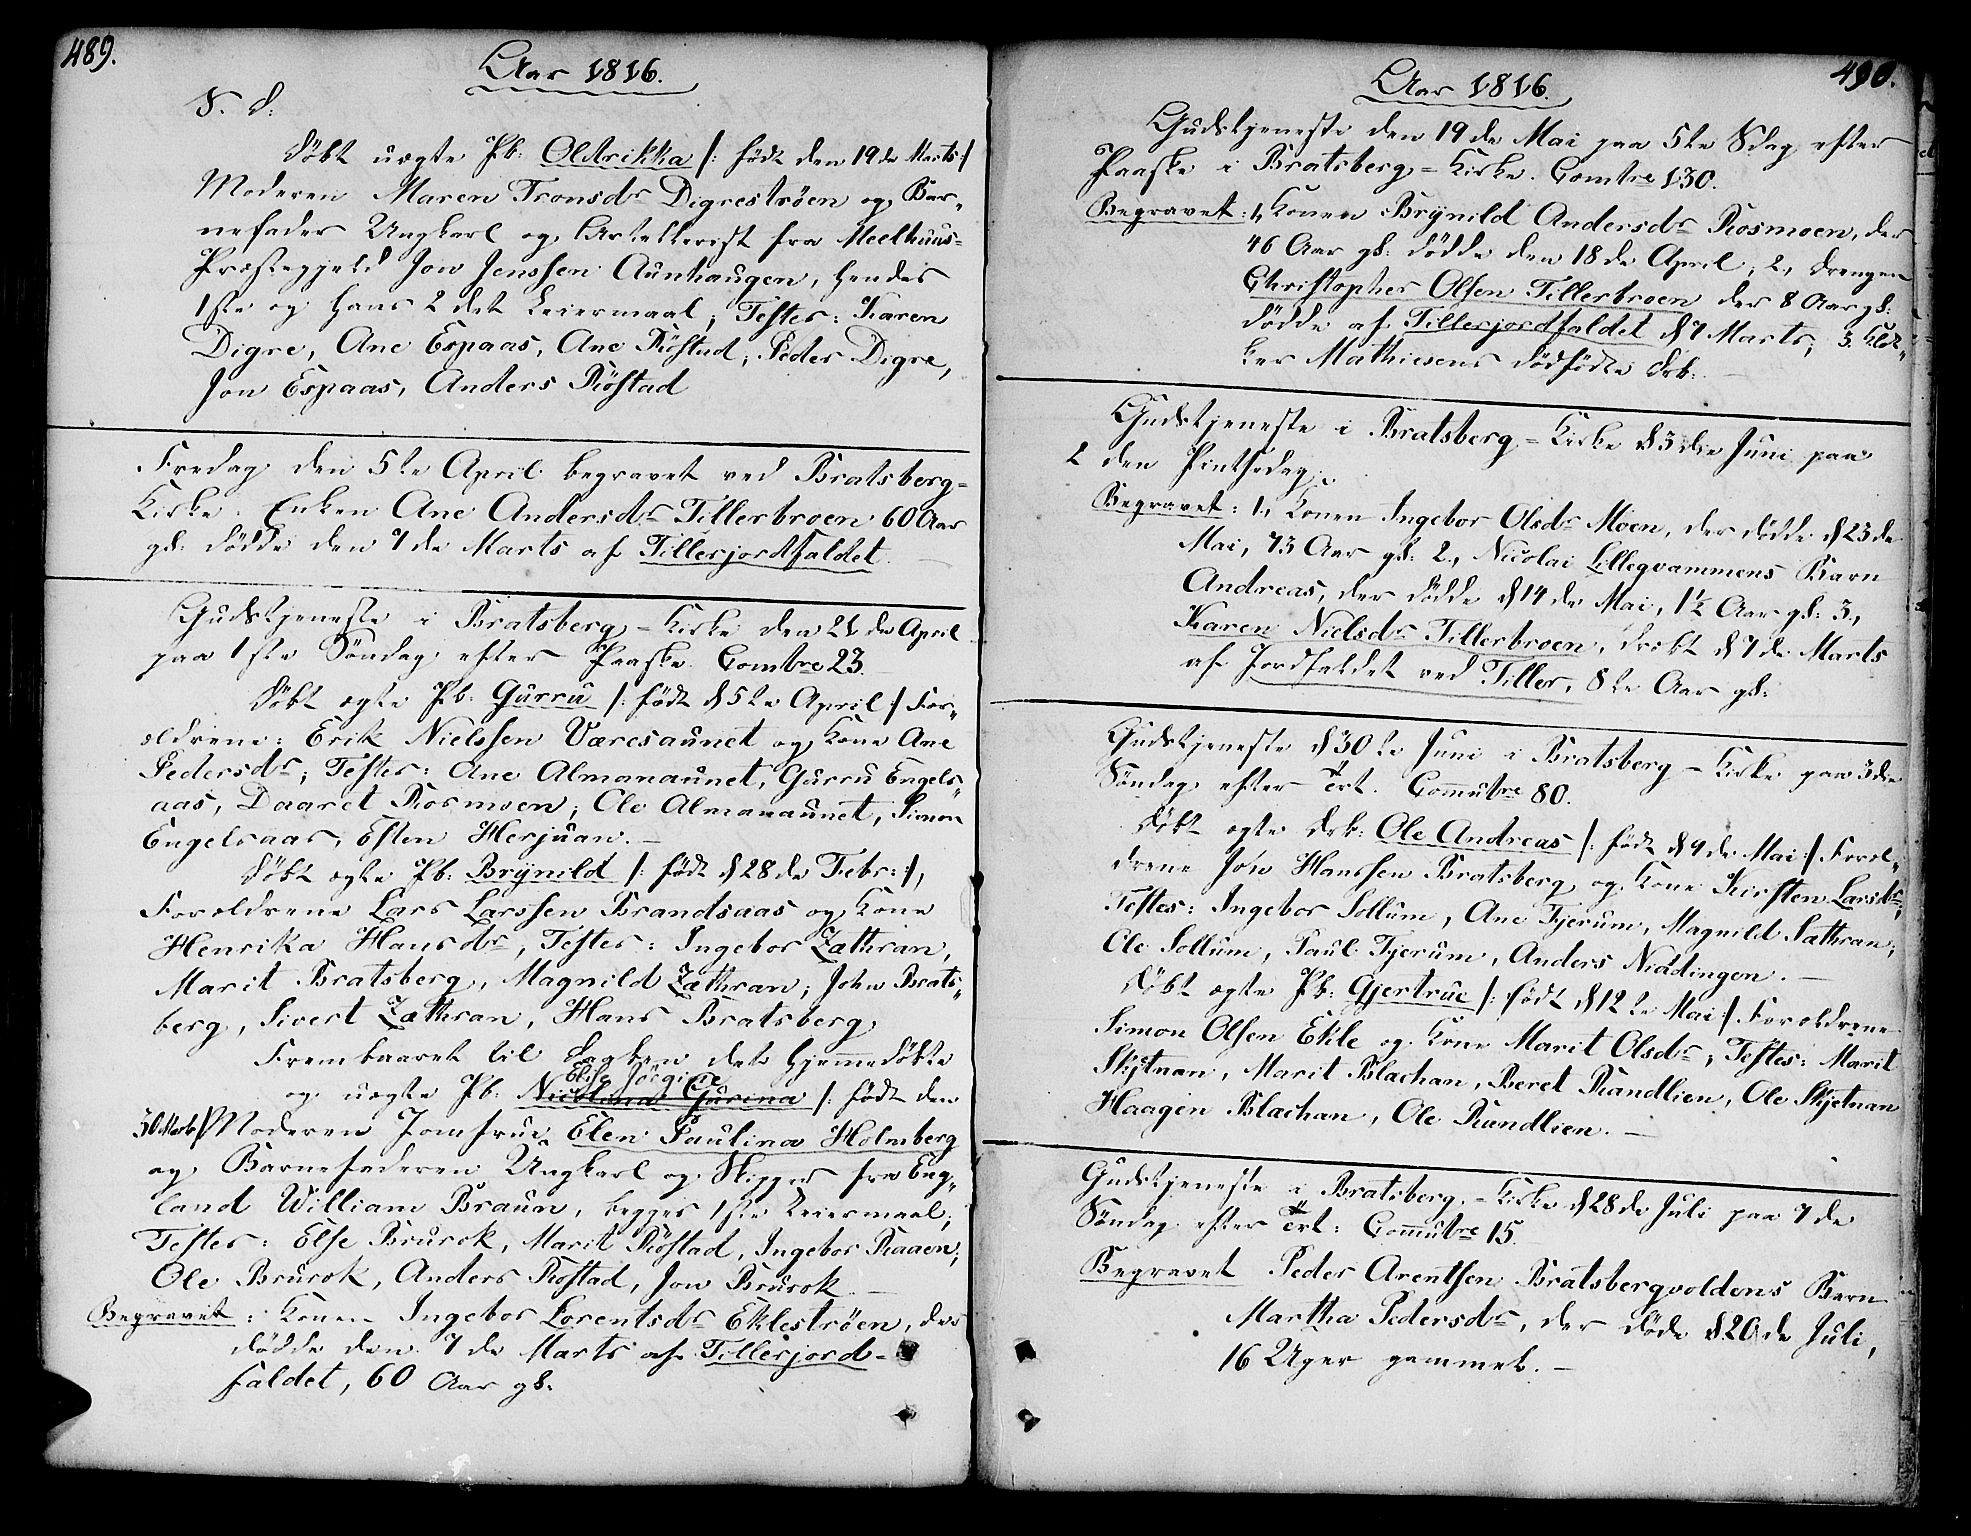 489.
Aar 1816.
S. d:
Döbt uægte Pb: Oldrikka /: födt den 19de Marts :/
Moderen Maren Tronsdr Digreströen og Bar-
nefader Ungkarl og Artellerist fra Meelhuus-
Præstegjeld Jon Jenssen Aunhaugen, hendes
1ste og hans 2det Leiermaal; Testes: Karen
Digre, Ane Espaas, Ane Röstad; Peder Digre,
Jon Espaas, Anders Röstad
Fredag den 5te April begravet ved Bratsberg-
Kirke: Enken Ane Andersdr Tillerbroen 60 Aar
gl: dödde den 7de Marts af Tillerjordfaldet.
Gudstjeneste i Bratsberg-Kirke den 21de April
paa 1ste Söndag efter Paaske. Comtre 23.
Döbt ægte Pb: Gurru /: födt d 5te April :/ For-
ældrene: Erik Nielssen Væresaunet og Kone Ane
Pedersdr; Testes: Ane Almanaunet, Gurru Engels-
aas, Daaret Rosmoen; Ole Almanaunet, Simon
Engelsaas, Esten Herjuan. —
Döbt ægte Pb: Brynild /: födt d 28de Febr: :/,
Forældrene Lars Larssen Brandsaas og Kone
Henrika Hansdr, Testes: Ingebor Zæthran,
Marit Bratsberg, Magnild Zæthran; John Brats-
berg, Sivert Zæthran, Hans Bratsberg
Frembaaret til Daaben det hjemmedöbte
Else Jörgine
og uægte Pb: Nicolina Gurina /: födt den
30 Marts :/ Moderen Jomfrue Elen Paulina Holmberg
og Barnefaderen Ungkarl og Skipper fra Eng-
land William Braun, begges 1ste Leiermaal;
Testes: Else Brurok, Marit Röstad, Ingebor Raaen;
Ole Brurok, Anders Röstad, Jon Brurok —
Begravet: Konen Ingebor Lorentsdr Ekleströen, der
dödde den 7de Marts af Tillerjord-
faldet, 60 Aar gl:
490.
Aar 1816.
Gudstjeneste den 19de Mai paa 5te Sdag efter
Paaske i Bratsberg-Kirke. Comtre 130.
Begravet: 1, Konen Brynild Andersdr Rosmoen, der
46 Aar gl: dödde den 18de April; 2, Drengen
Christopher Olsen Tillerbroen der 8 Aar gl:
dödde af Tillerjordfaldet d 7 Marts; 3. Klok-
ker Mathiesens dödfödte Drb: —
Gudstjeneste i Bratsberg-Kirke d 3die Juni paa
2den Pintsedag.
Begravet: 1, Konen Ingebor Olsdr Moen, der dödde d 23de
Mai, 73 Aar gl: 2, Nicolai Lillegvammens Barn
Andreas, der dödde d 14de Mai, 1½ Aar gl: 3,
Karen Nielsdr Tillerbroen, dræbt d 7de Marts
af Jordfaldet ved Tiller, 8te Aar gl:
Gudstjeneste d 30te Juni i Bratsberg-Kirke paa 3die
Söndag efter Trt. Commtre 80.
Döbt ægte Drb: Ole Andreas /: födt d 9de Mai :/ Foræl-
drene Jon Hanssen Bratsberg og Kone Kirsten Larsdr;
Testes: Ingebor Sollum, Ane Tjerum, Magnild Sæthran;
Ole Sollum, Paul Tjerum, Anders Niddingen. —
Döbt ægte Pb: Gjertrue /: födt d 12te Mai :/ Forældrene
Simon Olsen Ekle og Kone Marit Olsdr; Testes: Marit
Skjetnan, Marit Blachan, Beret Randlien, Ole Skjetnan
Haagen Blachan, Ole Randlien. —
Gudstjeneste i Bratsberg-Kirke d 28de Juli paa 7de
Söndag efter Trt: Commtre 15.
Begravet Peder Arentsen Bratsbergvoldens Barn
Martha Pedersdr, der döde d 20de Juli,
16 Uger gammel. —